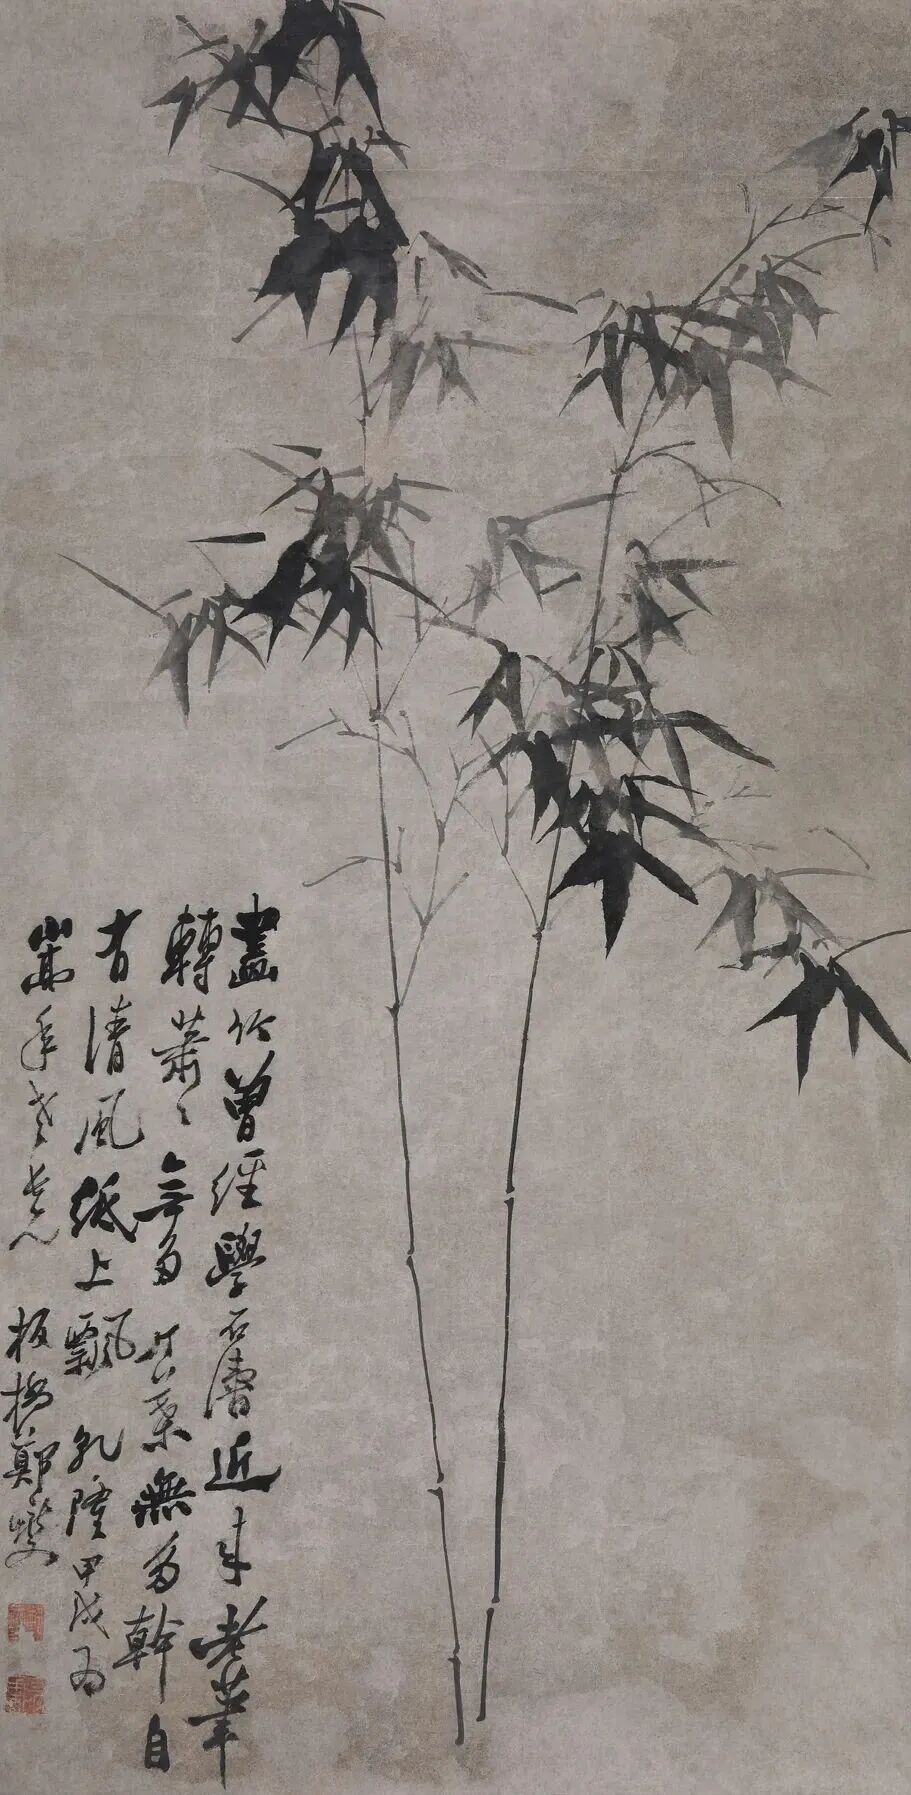 畫竹曾經學石濤近來老筆
轉蕭〻無多竹葉無多幹自
有清風紙上飄 乾隆甲戌為
嵩年老長兄
板橋鄭燮